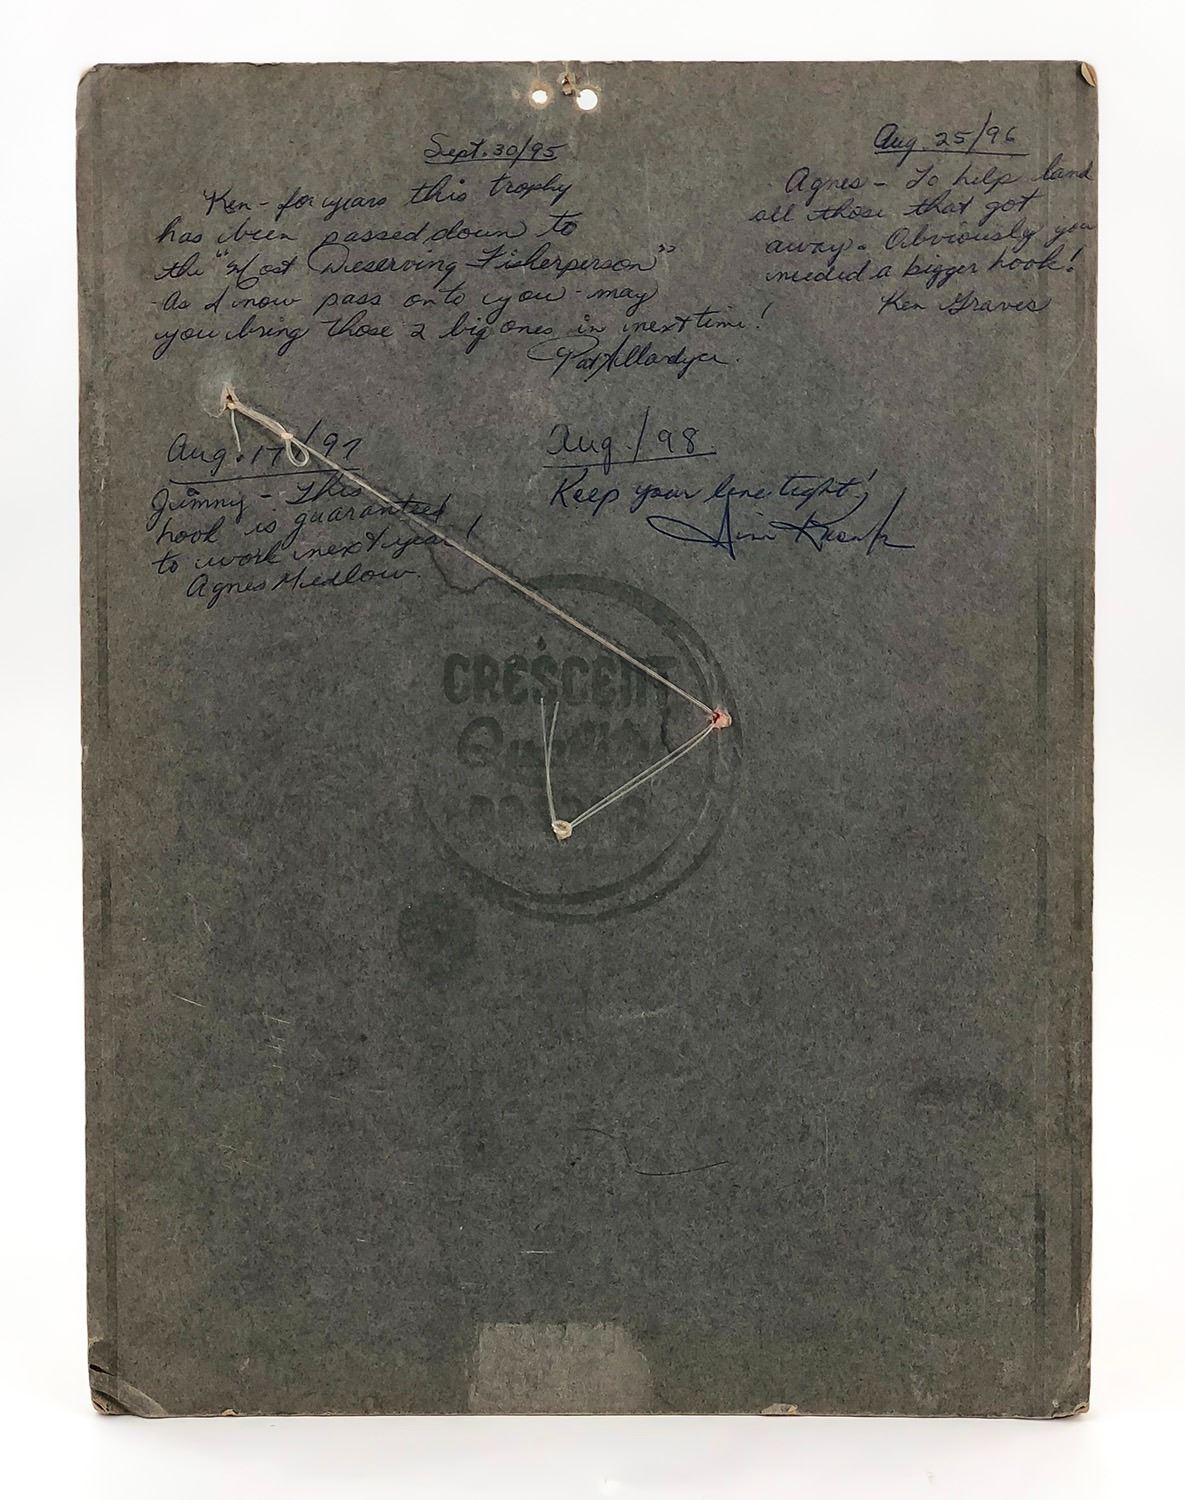 Sept. 30/95
Ken - for years this trophy
has been passed down to
the "Most Deserving Fisherperson"
- As I now pass onto you - may
you bring those 2 big ones in next time!
Pat Allardyce.
Aug. 25/96
Agnes - To help land
all those that got
away. Obviously you
needed a bigger hook!
Ken Graves
Aug. 17/97
Jimmy - This
hook is guaranteed
to work next year!
Agnes Medlow.
Aug./98
Keep your line tight!
Jim
CRESCENT
Quality